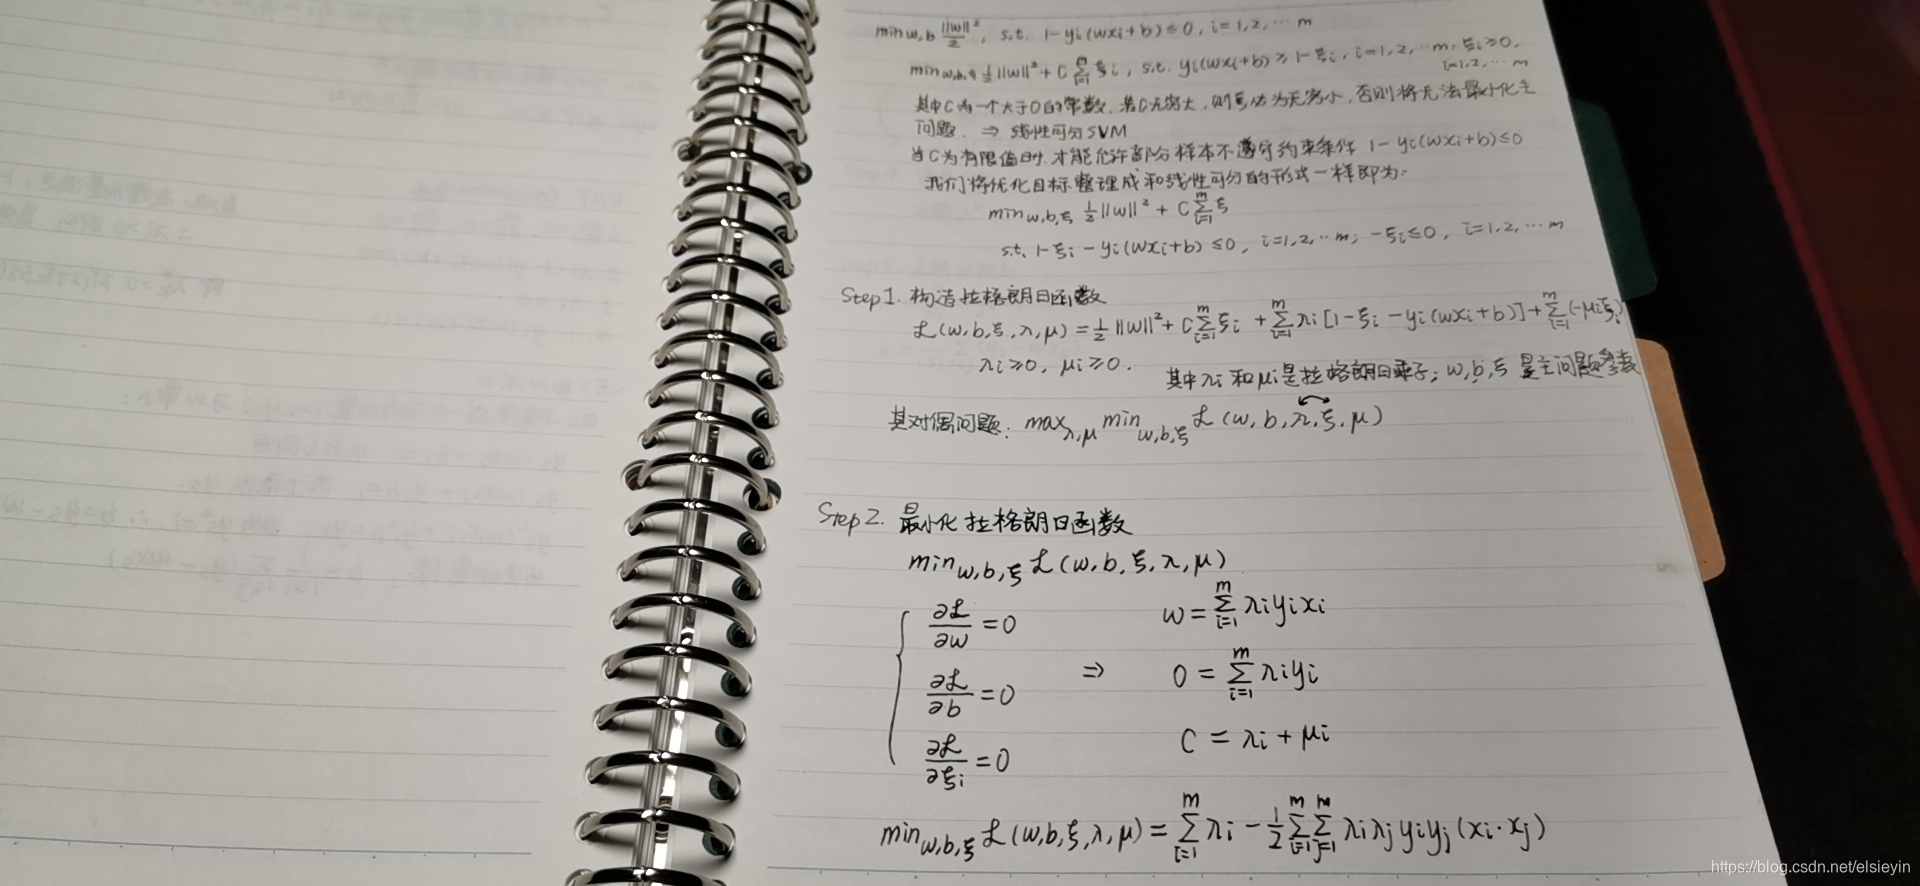 min w,b ||w||²/2, s.t. 1-yi(wxi+b)≤0, i=1,2,…m
min w,b,ξ ½||w||²+C∑_{i=1}^{m}ξi, s.t. yi(wxi+b)≥1-ξi, i=1,2,…m, ξi≥0,
i=1,2,…m
其中C为一个大于0的常数,若C无穷大,则ξi必为无穷小,否则将无法最小化主
问题. ⇒ 线性可分SVM
当C为有限值时,才能允许部分样本不遵守约束条件 1-yi(wxi+b)≤0
我们将优化目标整理成和线性可分的形式一样即为:
min w,b,ξ ½||w||² + C∑_{i=1}^{m}ξ
s.t. 1-ξi-yi(wxi+b)≤0, i=1,2,…m; -ξi≤0, i=1,2,…m
Step1. 构造拉格朗日函数
ℒ(w,b,ξ,λ,μ)=½||w||²+C∑_{i=1}^{m}ξi+∑_{i=1}^{m}λi[1-ξi-yi(wxi+b)]+∑_{i=1}^{m}(-μiξi)
λi≥0, μi≥0.
其中λi和μi是拉格朗日乘子; w,b,ξ是主问题参数
其对偶问题: max λ,μ min w,b,ξ ℒ(w,b,λ,ξ,μ)
Step2. 最小化拉格朗日函数
min w,b,ξ ℒ(w,b,ξ,λ,μ)
∂ℒ/∂w=0 w=∑_{i=1}^{m}λiyixi
∂ℒ/∂b=0 ⇒ 0=∑_{i=1}^{m}λiyi
∂ℒ/∂ξi=0 C=λi+μi
min w,b,ξ ℒ(w,b,ξ,λ,μ)=∑_{i=1}^{m}λi-½∑_{i=1}^{m}∑_{j=1}^{m}λiλjyiyj(xi·xj)
https://blog.csdn.net/elsieyin